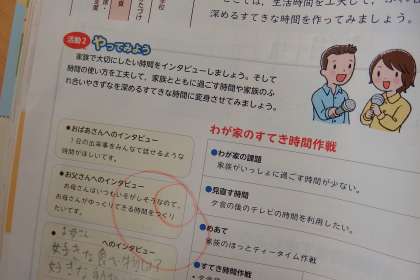 学校
かたづけ
ここでは、生活時間を工夫して、
すてきな時間を作ってみましょう。
活動2 やってみよう
家族で大切にしたい時間をインタビューしましょう。そして
時間の使い方を工夫して、家族とともに過ごす時間や家族のふ
れ合いやきずなを深めるすてきな時間に変身させてみましょう。
●おばあさんへのインタビュー
1日の出来事をみんなで話せるような
時間がほしいです。
●お父さんへのインタビュー
お母さんはいつもいそがしそうなので、
お母さんがゆっくりできる時間をつくり
たいです。
●お母さん へのインタビュー
好きな食べ物は?
好きな
わが家のすてき時間作戦
●わが家の課題
家族がいっしょに過ごす時間が少ない。
●見直す時間
夕食の後のテレビの時間を利用したい。
●めあて
家族のほっとティータイム作戦
●すてき時間作戦